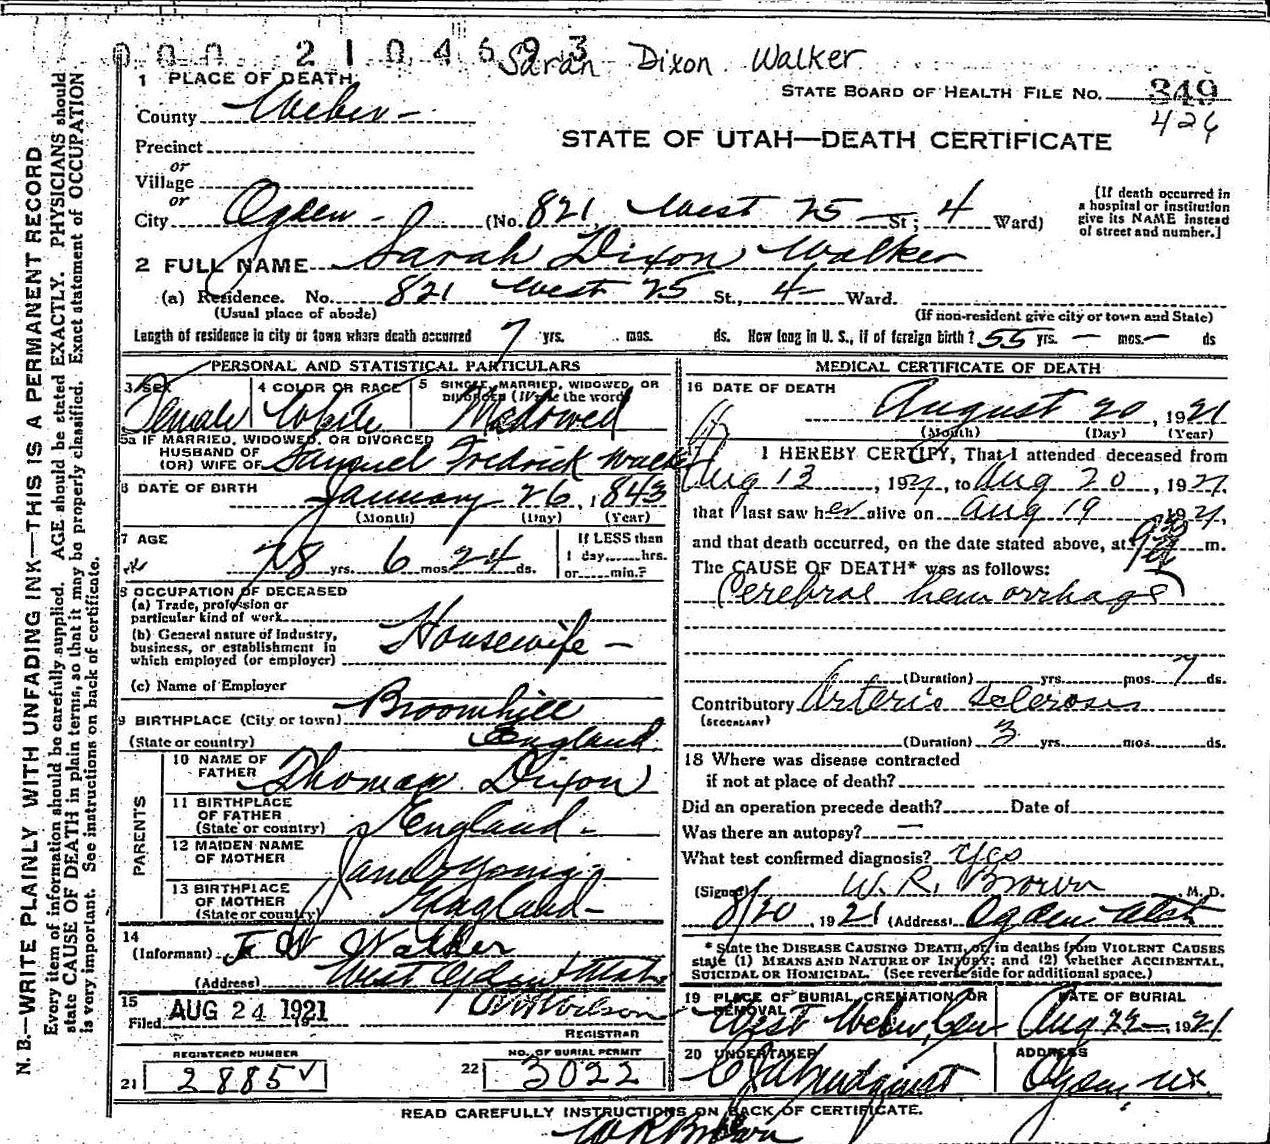 000 2104693 Sarah Dixon Walker
1 PLACE OF DEATH
STATE BOARD OF HEALTH FILE NO. 349
County Weber
426
STATE OF UTAH—DEATH CERTIFICATE
Precinct
or
Village
or
City Ogden (No. 821 West 25 St; 4 Ward)
[If death occurred in
a hospital or institution
give its NAME instead
of street and number.]
2 FULL NAME Sarah Dixon Walker
(a) Residence. No. 821 West 25 St., 4 Ward.
(Usual place of abode) (If non-resident give city or town and State)
Length of residence in city or town where death occurred 7 yrs. mos. ds. How long in U. S., if of foreign birth? 55 yrs. — mos. — ds
PERSONAL AND STATISTICAL PARTICULARS
3 SEX Female
4 COLOR OR RACE White
5 SINGLE, MARRIED, WIDOWED OR
DIVORCED (Write the word) Widowed
5a IF MARRIED, WIDOWED, OR DIVORCED
HUSBAND OF
(OR) WIFE OF Samuel Fredrick Walker
6 DATE OF BIRTH January 26, 1843
(Month) (Day) (Year)
7 AGE 78 yrs. 6 mos 24 ds.
If LESS than
1 day,.....hrs.
or......min.?
8 OCCUPATION OF DECEASED
(a) Trade, profession or
particular kind of work
(b) General nature of Industry,
business, or establishment in
which employed (or employer) Housewife —
(c) Name of Employer
9 BIRTHPLACE (City or town) Broomhill
(State or country) England
PARENTS
10 NAME OF
FATHER Thomas Dixon
11 BIRTHPLACE
OF FATHER
(State or country) England -
12 MAIDEN NAME
OF MOTHER Jane Young
13 BIRTHPLACE
OF MOTHER
(State or country) England -
14
(Informant) F W Walker
(Address) West Ogden Utah
15
Filed AUG 24 1921
REGISTRAR
REGISTERED NUMBER
21 2885
NO. OF BURIAL PERMIT
22 3022
MEDICAL CERTIFICATE OF DEATH
16 DATE OF DEATH
August 20, 1921
(Month) (Day) (Year)
17 I HEREBY CERTIFY, That I attended deceased from
Aug 13, 1921, to Aug 20, 1921,
that I last saw her alive on Aug 19 1921,
and that death occurred, on the date stated above, at m.
The CAUSE OF DEATH* was as follows:
Cerebral hemorrhage
(Duration) yrs. mos. 7 ds.
Contributory Arterio Sclerosis
(SECONDARY)
(Duration) 3 yrs. mos. ds.
18 Where was disease contracted
if not at place of death?
Did an operation precede death? Date of
Was there an autopsy? —
What test confirmed diagnosis? Yes
(Signed) W. R. Brown M. D.
8/20, 1921 (Address) Ogden Utah
* State the DISEASE CAUSING DEATH, or, in deaths from VIOLENT CAUSES
state (1) MEANS AND NATURE OF INJURY; and (2) whether ACCIDENTAL,
SUICIDAL OR HOMICIDAL. (See reverse side for additional space.)
19 PLACE OF BURIAL, CREMATION, OR
REMOVAL West Weber, Cem
DATE OF BURIAL
Aug 22 — 1921
20 UNDERTAKER
ADDRESS
Ogden Ut
READ CAREFULLY INSTRUCTIONS ON BACK OF CERTIFICATE.
W R Brown
N. B.—WRITE PLAINLY WITH UNFADING INK—THIS IS A PERMANENT RECORD
Every item of information should be carefully supplied. AGE should be stated EXACTLY. PHYSICIANS should
state CAUSE OF DEATH in plain terms, so that it may be properly classified. Exact statement of OCCUPATION
is very important. See instructions on back of certificate.